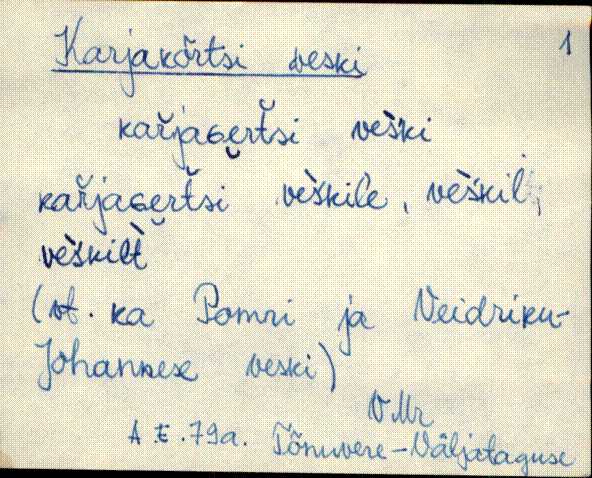 Karjakõrtsi veski 1
kařjaɢe̮řtši vèški
kařjaɢe̮řtši vèškile, vèškil,
vèškilt
(vt. ka Pomri ja Veidriku-
Johannese veski)
V.Mr
A.E.79a. Tõnuvere-Väljataguse